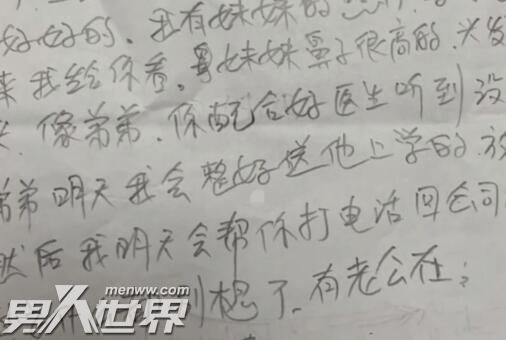 好好的、我有妹妹的
我给你看。妹妹鼻子很高的.头发
像弟弟.你配合好医生听到没
弟弟明天我会整好送他上学的.放
然后我明天会帮你打电话回公司
别想了、有老公在;
男人世界
menww.com